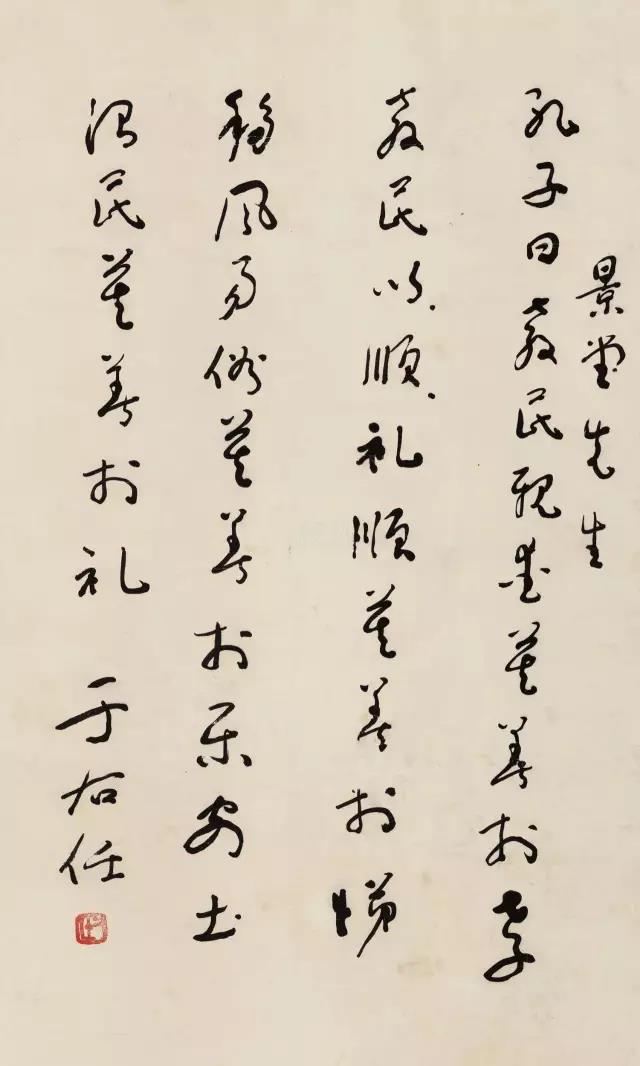 景堂先生
孔子曰教民親愛莫善於孝
教民以順礼順莫善於悌
移風易俗莫善於樂安上
治民莫善於礼 于右任